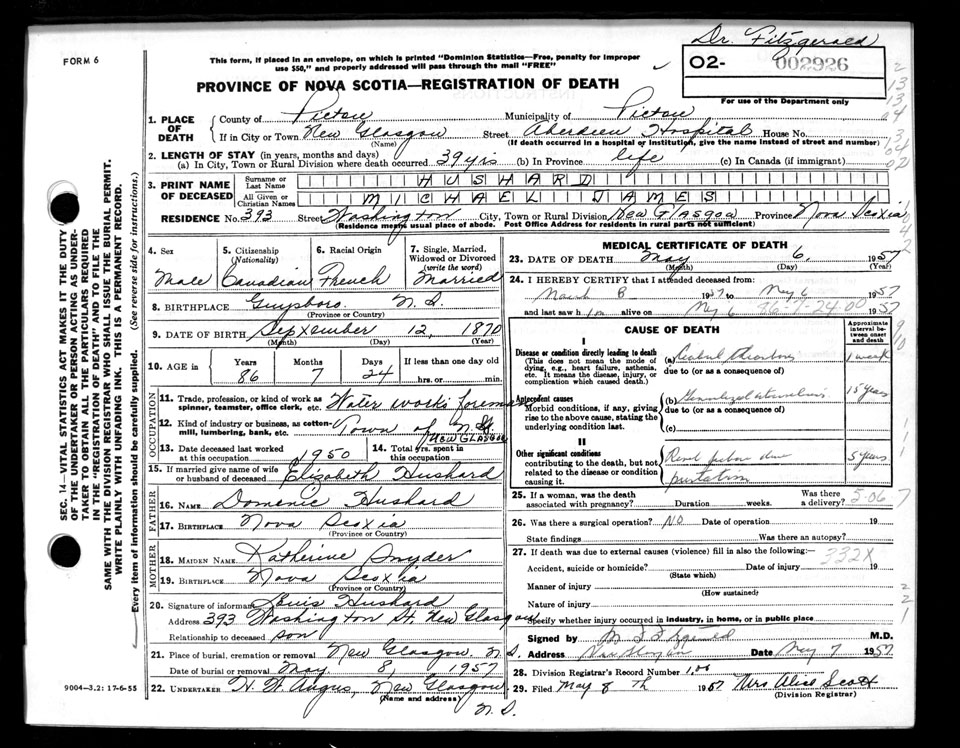 Dr. Fitzgerald
FORM 6
This form, if placed in an envelope, on which is printed "Dominion Statistics—Free, penalty for improper
use $50," and properly addressed will pass through the mail "FREE"
02- 002926
For use of the Department only
PROVINCE OF NOVA SCOTIA—REGISTRATION OF DEATH
1. PLACE OF DEATH
County of Pictou Municipality of Pictou
If in City or Town New Glasgow Street Aberdeen Hospital House No.
(Name) (If death occurred in a hospital or institution, give the name instead of street and number)
2. LENGTH OF STAY (in years, months and days)
(a) In City, Town or Rural Division where death occurred 39 yrs (b) In Province life (c) In Canada (if immigrant)
3. PRINT NAME OF DECEASED
Surname or Last Name HUSHARD
All Given or Christian Names MICHAEL JAMES
RESIDENCE No. 393 Street Washington City, Town or Rural Division New Glasgow Province Nova Scotia
(Residence means usual place of abode. Post Office Address for residents in rural parts not sufficient)
4. Sex Male
5. Citizenship (Nationality) Canadian
6. Racial Origin French
7. Single, Married, Widowed or Divorced (write the word) Married
8. BIRTHPLACE Guysboro. N.S.
(Province or Country)
9. DATE OF BIRTH September 12, 1870
(Month) (Day) (Year)
10. AGE in Years 86 Months 7 Days 24 If less than one day old
hrs. or min.
OCCUPATION
11. Trade, profession, or kind of work as spinner, teamster, office clerk, etc. Water works foreman
12. Kind of industry or business, as cotton-mill, lumbering, bank, etc. Town of N.G.
NEW GLASGOW
13. Date deceased last worked at this occupation 1950 14. Total yrs. spent in this occupation
15. If married give name of wife or husband of deceased Elizabeth Hushard
FATHER
16. NAME Domenic Hushard
17. BIRTHPLACE Nova Scotia
(Province or Country)
MOTHER
18. MAIDEN NAME Katherine Snyder
19. BIRTHPLACE Nova Scotia
(Province or Country)
20. Signature of informant Louis Hushard
Address 393 Washington St. New Glasgow
Relationship to deceased son
21. Place of burial, cremation or removal New Glasgow, N.S.
Date of burial or removal May 8, 1957
22. UNDERTAKER H. W. Angus, New Glasgow
(Name and address) N.S.
MEDICAL CERTIFICATE OF DEATH
23. DATE OF DEATH May 6, 1957
(Month) (Day) (Year)
24. I HEREBY CERTIFY that I attended deceased from:
March 8 1957 to May 6 1957
and last saw him alive on May 6 86-1-24-00 1957
CAUSE OF DEATH
Approximate interval between onset and death
I
Disease or condition directly leading to death
(This does not mean the mode of dying, e.g., heart failure, asthenia, etc. It means the disease, injury, or complication which caused death.)
(a) Cerebral thrombosis 1 week
due to (or as a consequence of)
Antecedent causes
Morbid conditions, if any, giving rise to the above cause, stating the underlying condition last.
(b) Generalized 15 years
due to (or as a consequence of)
(c)
II
Other significant conditions
contributing to the death, but not related to the disease or condition causing it.
Renal failure due 5 years
25. If a woman, was the death associated with pregnancy? Duration weeks. Was there a delivery? 5-06
26. Was there a surgical operation? NO Date of operation 19
State findings Was there an autopsy?
27. If death was due to external causes (violence) fill in also the following:—
332X
Accident, suicide or homicide? Date of injury 19
(State which)
Manner of injury
(How sustained)
Nature of injury
Specify whether injury occurred in industry, in home, or in public place
Signed by M.D.
Address New Glasgow Date May 7 1957
28. Division Registrar's Record Number 100
29. Filed May 8 Th 1957 Mrs Alice Scott
(Division Registrar)
9004—3.2: 17-6-55
SEC. 14—VITAL STATISTICS ACT MAKES IT THE DUTY
OF THE UNDERTAKER OR PERSON ACTING AS UNDER-
TAKER TO OBTAIN ALL THE PARTICULARS REQUIRED
IN THE "REGISTRATION OF DEATH" AND TO FILE THE
SAME WITH THE DIVISION REGISTRAR WHO SHALL ISSUE THE BURIAL PERMIT.
WRITE PLAINLY WITH UNFADING INK. THIS IS A PERMANENT RECORD.
Every item of information should be carefully supplied. (See reverse side for instructions.)